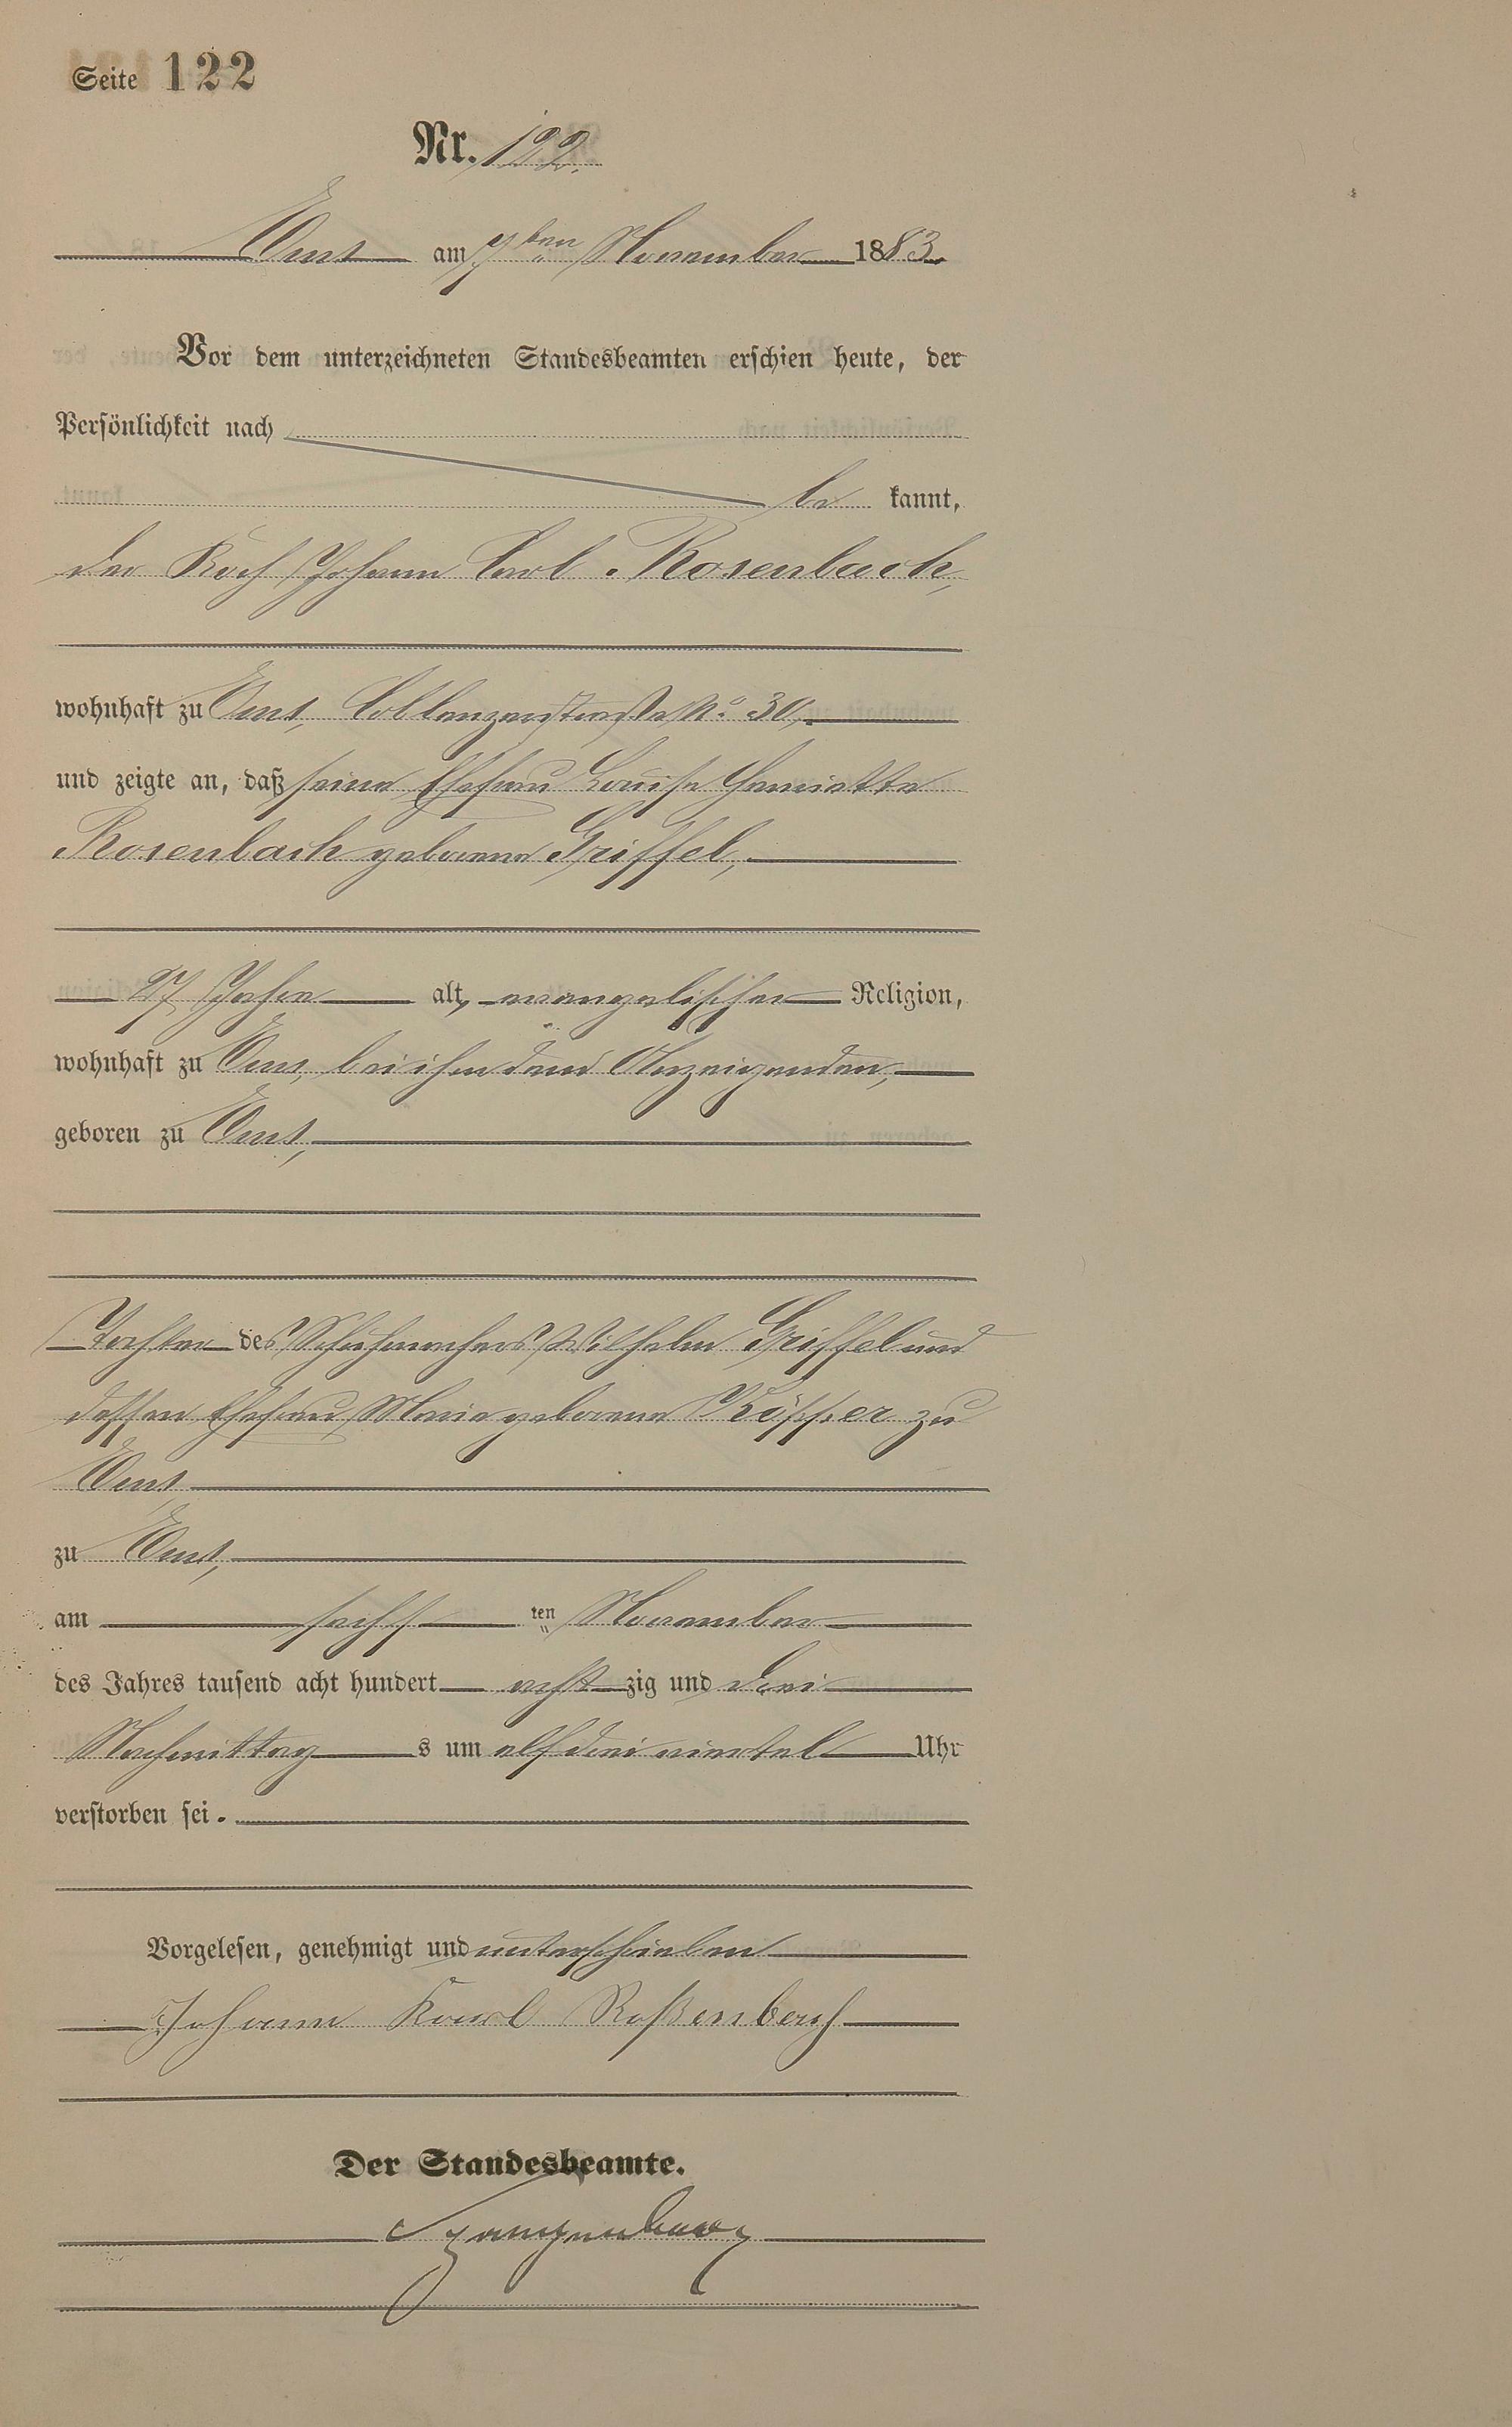 Seite 122
Nr. 122.
Ems am 7ten November 1883.
Vor dem unterzeichneten Standesbeamten erschien heute, der
Persönlichkeit nach
be kannt,
der Koch Johann Carl Rosenbach,
wohnhaft zu Ems, Coblenzerstraße No. 30,
und zeigte an, daß seine Ehefrau Louise Henriette
Rosenbach geborene Griffel,
27 Jahre alt, evangelischer Religion,
wohnhaft zu Ems, bei ihm dem Anzeigenden,
geboren zu Ems,
Tochter des Schuhmachers Wilhelm Griffel und
dessen Ehefrau Maria geborene zu
Ems
zu Ems,
am sechs ten November
des Jahres tausend acht hundert acht zig und drei
Nachmittag s um elf drei viertel Uhr
verstorben sei.
Vorgelesen, genehmigt und unterschrieben
Johann Karl Roßenbach
Der Standesbeamte.